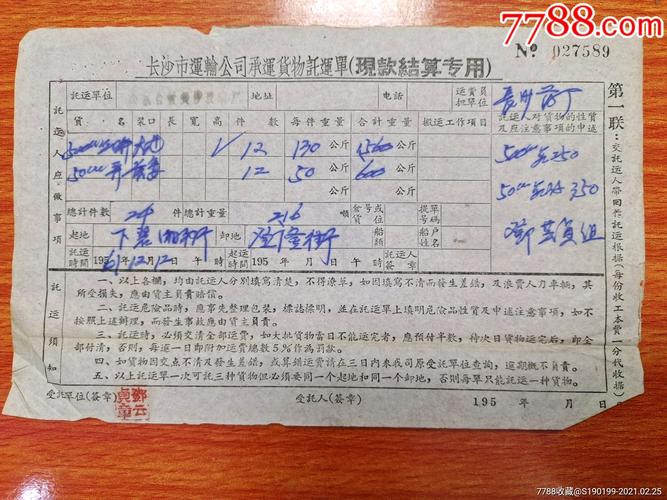 7788.com
№ 027589
长沙市運輸公司承運貨物託運單(現款結算专用)
託運單位 地址 电話 運費負担單位
貨名 裝口 長 寬 高 件数 每件重量 合計重量 搬运工作項目 託運人对貨物的性質及应注意事項的申述
12 130 公斤 1560 公斤
12 50 公斤 600 公斤
總計件數 24 件 總計重量 216 噸 倉号或貨位 提單号碼
起地 卸地 船類 船戶姓名
託運時間 1961.12.12 日 午 時 起运時間 195 年 月 日 午 時 託运人簽章
託运人应做事項
託运須知
一、以上各欄，均由託运人分別填寫清楚，不得潦草，如因填寫不清而發生差錯，及浪費人力車輛，其
所受損失，應由貨主員責賠償。
二、託运危險品時，應事先整理包裝，標誌標明，並在託运單上填明危險品性質及申述注意事項，如不
按照上述辦理，而發生事故應由貨主負責。
三、託运時，必須交清全部运費，如大批貨物当日不能运完者，應預付半數，待次日貨物运完后，即全
部付清，否則，每逐一日即附加运費總數5%作為罰款。
四、如貨物因交点不清及發生差錯，或算錯运費請在三日内来我司原受託單位查詢，逾期概不負責。
五、以上託运單一次可託三种貨物但必須要同一个起地和同一个卸地，否則每單只能託运一种貨物。
受託單位(簽章) 受託人(簽章) 195 年 月 日
第一联：交託运人帶回作託运根據(每份收工本費一分代收據)
7788收藏@S190199-2021.02.25